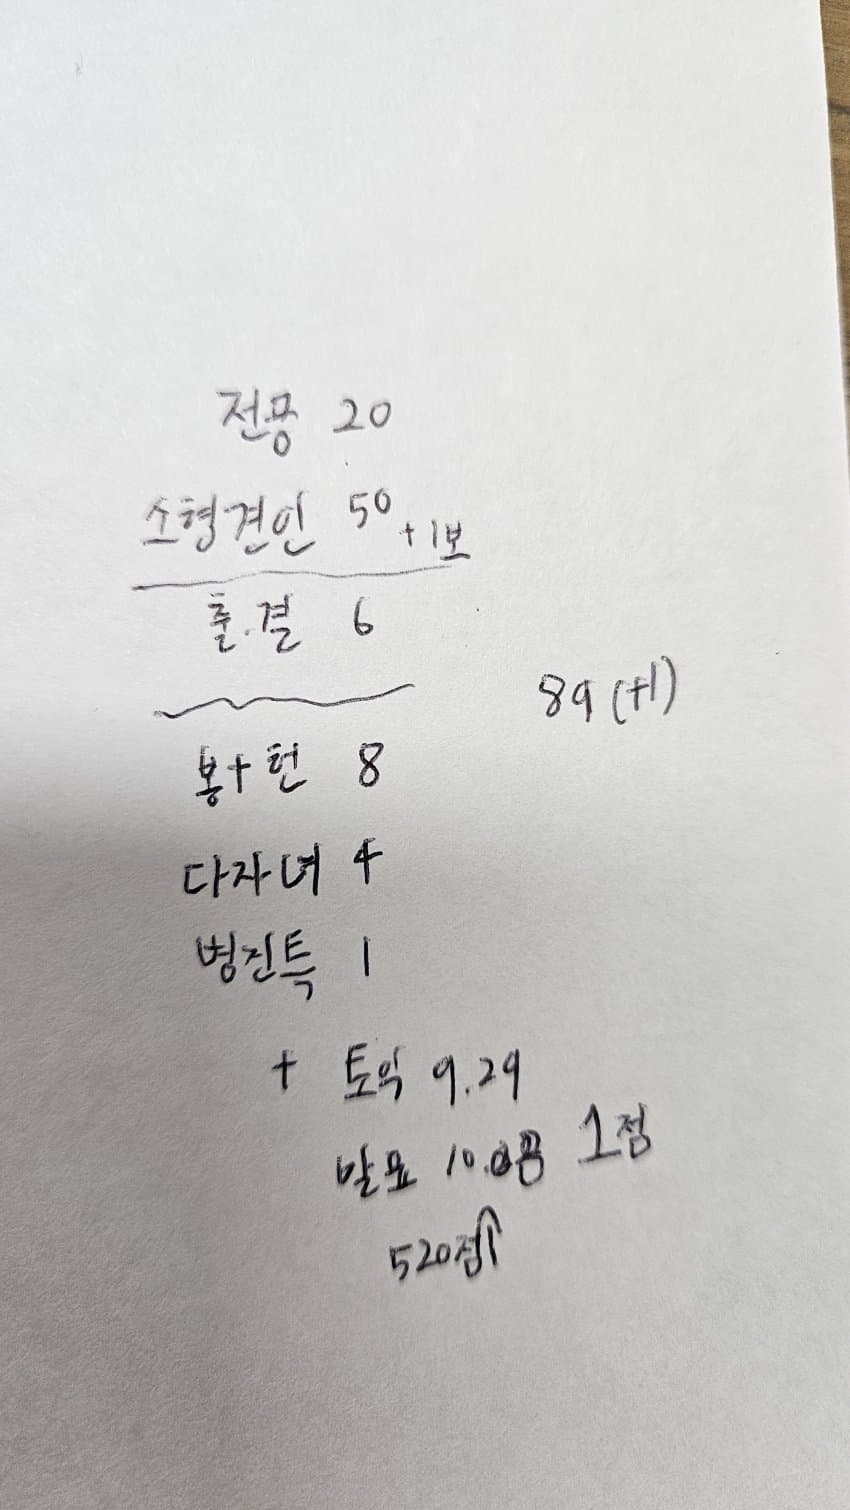 전공 20
소형견인 50 +1보
출.결 6
89 (+1)
봉+헌 8
다자녀 4
병진특 1
+ 토익 9.29
발표 10. 1점
520점↑